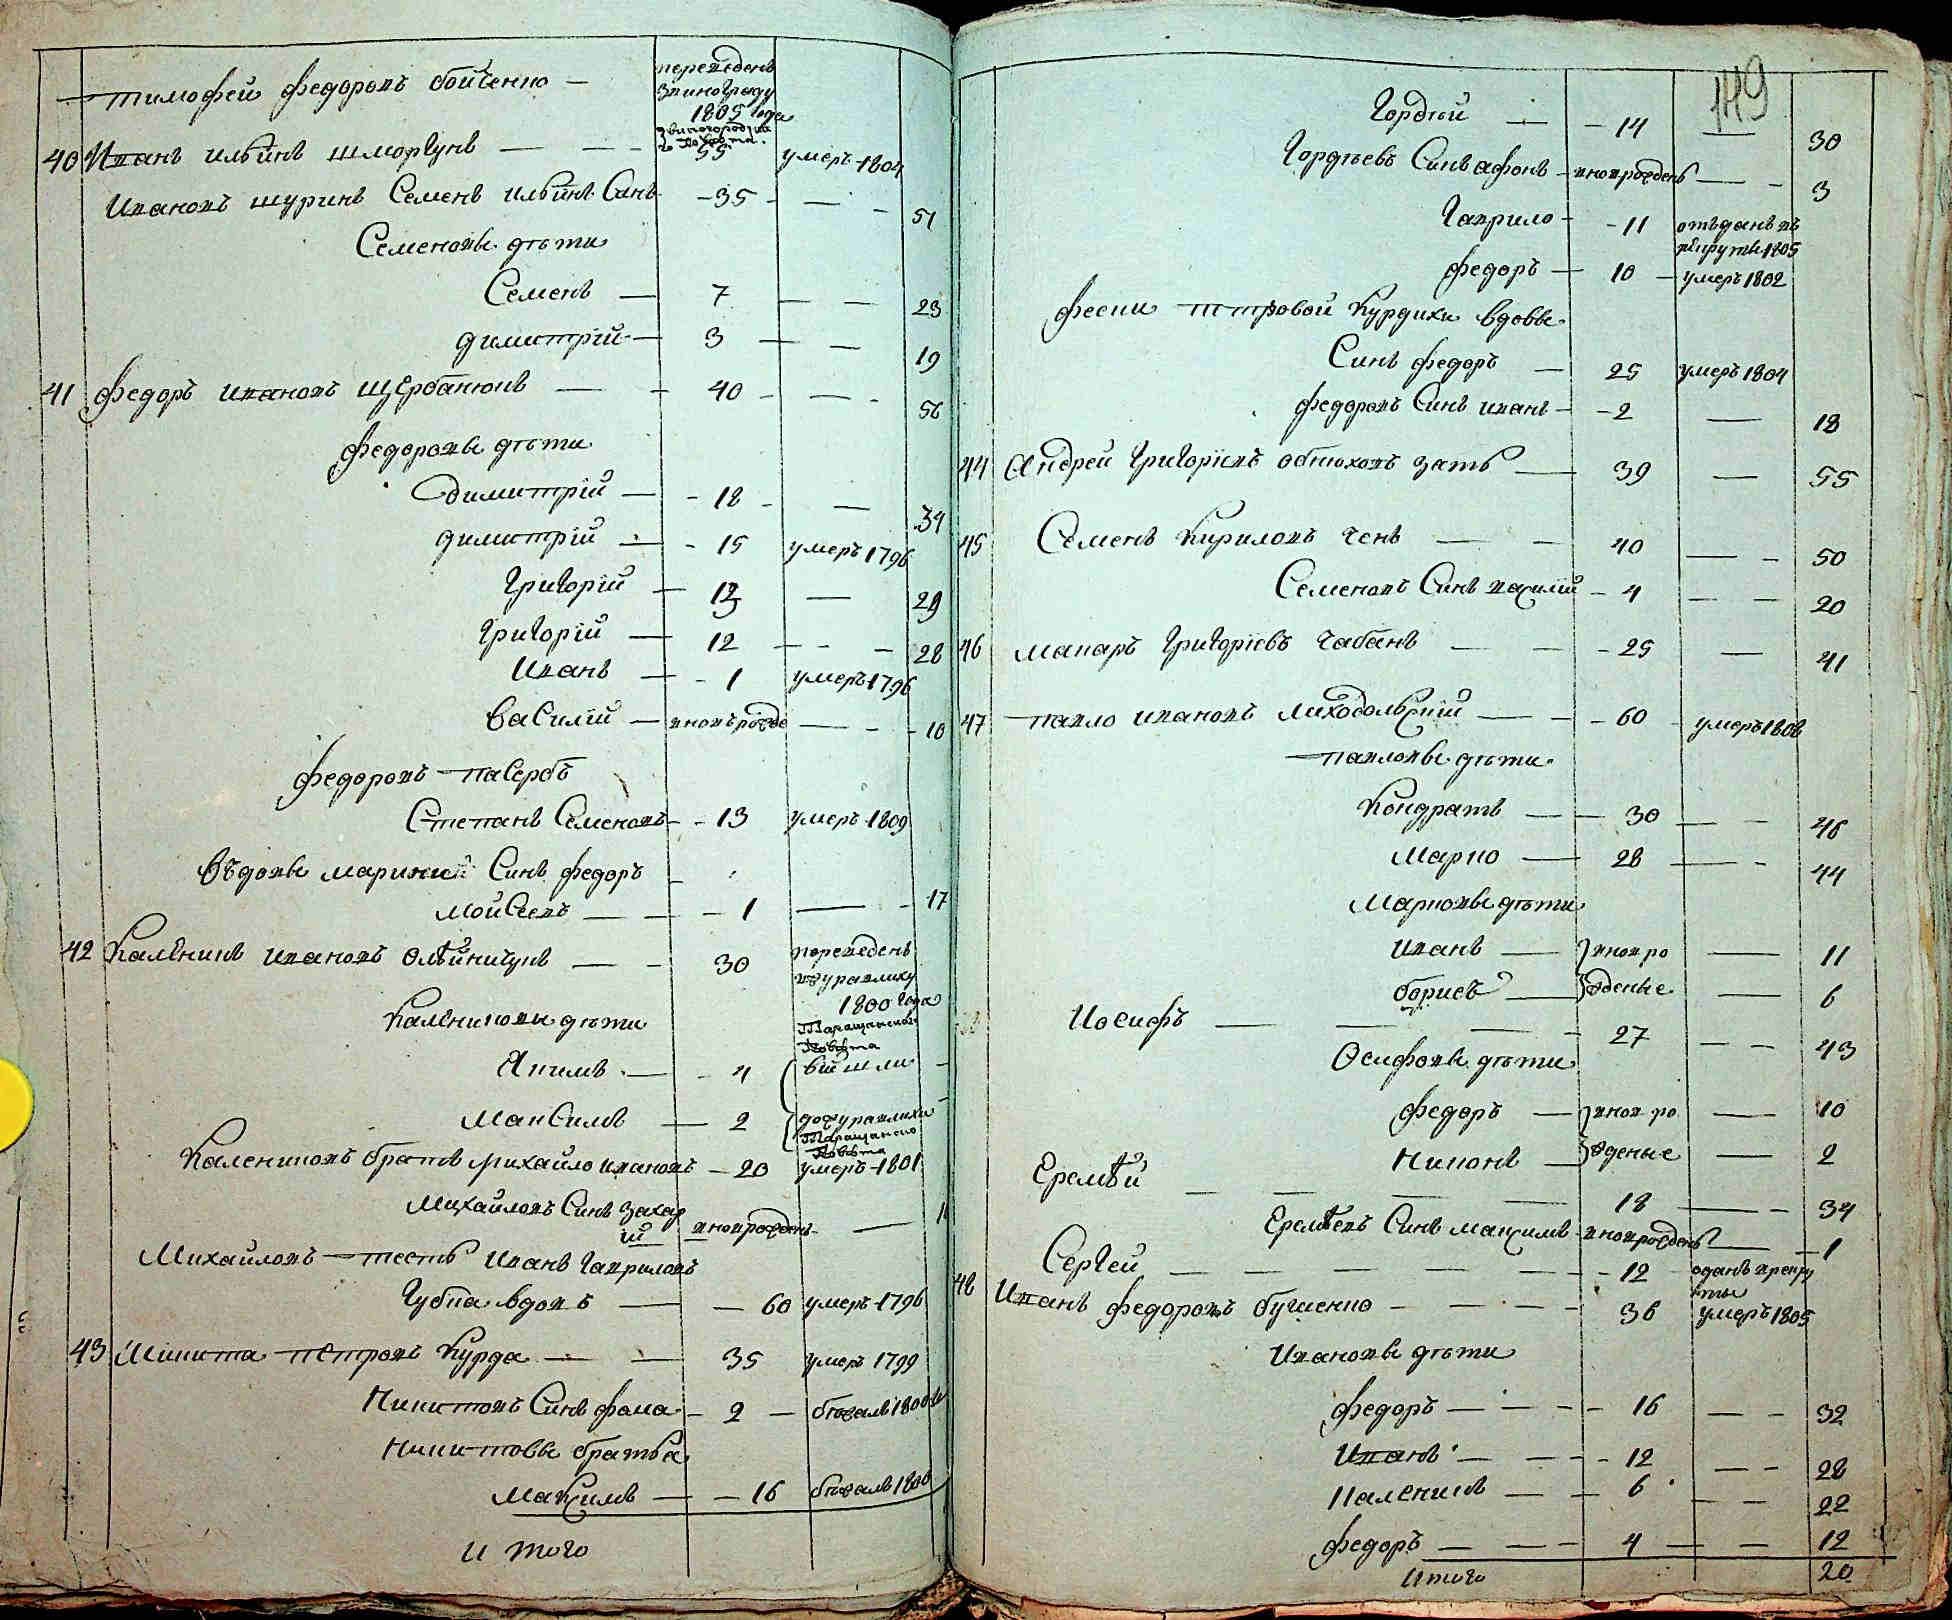 Тимофей Федоровъ бойченко — переведенъ
Звиногроду
1805 года
звиногородска
го повѣта.
40 Иванъ Ильинъ шморгунъ — — - 55 умеръ 1804
Ивановъ шуринъ Семенъ Ильинъ Синъ - 35 - — - 51
Семеновы дѣти
Семенъ — 7 — — 23
Димитрій — 3 — — 19
41 Федоръ Ивановъ Щербанюкъ — - 40 - — - 56
Федоровы дѣти
Димитрій — - 18 - — 34
Димитрій — - 15 умеръ 1796
Григорій — 13 — 29
Григорій — 12 — - — 28
Иванъ — - 1 умеръ 1796
Василій — вновърожде — - - 10
Федоровъ пасербъ
Степанъ Семеновъ - - 13 умеръ 1809
Въдовы Синъ Федоръ
Мойсеевъ — — - 1 — - 17
42 Каленикъ Ивановъ Олѣйничукъ — - 30 переведенъ
журавлиху
1800 года
Таращанского
Повѣта
Калениковы дѣти
Якимъ — - 4 вийшли -
Максимъ — 2 до журавлихи -
Таращанско
Повѣта
Калениковъ братъ Михайло Ивановъ - 20 умеръ 1801
Михайловъ Синъ Захар
ій вноврожденъ —
Михайловъ тесть Иванъ Гавриловъ
Губка вдовъ — — 60 умеръ 1796
43 Микита Петровъ Курда — — 35 умеръ 1799
Никитовъ Синъ Фома - 2 — бѣжалъ 1800
Никитовы братья
Максимъ — - 16 бѣжалъ 1800
Итого
149
Гордій — - 14 — 30
Гордѣевъ Синъ Афонъ - вноврожденъ — - 3
Гаврило - - 11 отъданъ въ
рекруты 1805
Федоръ — 10 — умеръ 1802
Фески Петровой Курдихи вдовы
Синъ Федоръ — 25 умеръ 1804
Федоровъ Синъ Иванъ - - 2 — 18
44 Андрей Григоріевъ зять — 39 — 55
45 Семенъ Кириловъ — — 40 — - 50
Семеновъ Синъ Василій - 4 — — 20
46 Макаръ Григоріевъ Чабанъ — — - 25 — 41
47 Павло Ивановъ Лиходольскій — - - 60 - умеръ 1808
Павловы дѣти
Кондратъ — — 30 — — 46
Марко — 28 — - 44
Марковы дѣти
Иванъ — вновро — 11
Борисъ — жденые — 6
Иосифъ — — — — 27 — — 43
Осифовы дѣти
Федоръ — вновро — 10
Никонъ — жденые — 2
Еремѣй — — — — 18 — - 34
Еремѣевъ Синъ Максимъ вноврожденъ — - 1
Сергей — — — — - - 12 оданъ врекру
ты
48 Иванъ Федоровъ бутченко - - - - 36 умеръ 1805
Ивановы дѣти
Федоръ — - - - 16 — - 32
Иванъ — - - 12 — - 28
Каленикъ — - 6 — - 22
Федоръ — — - 4 — — 12
Итого 20